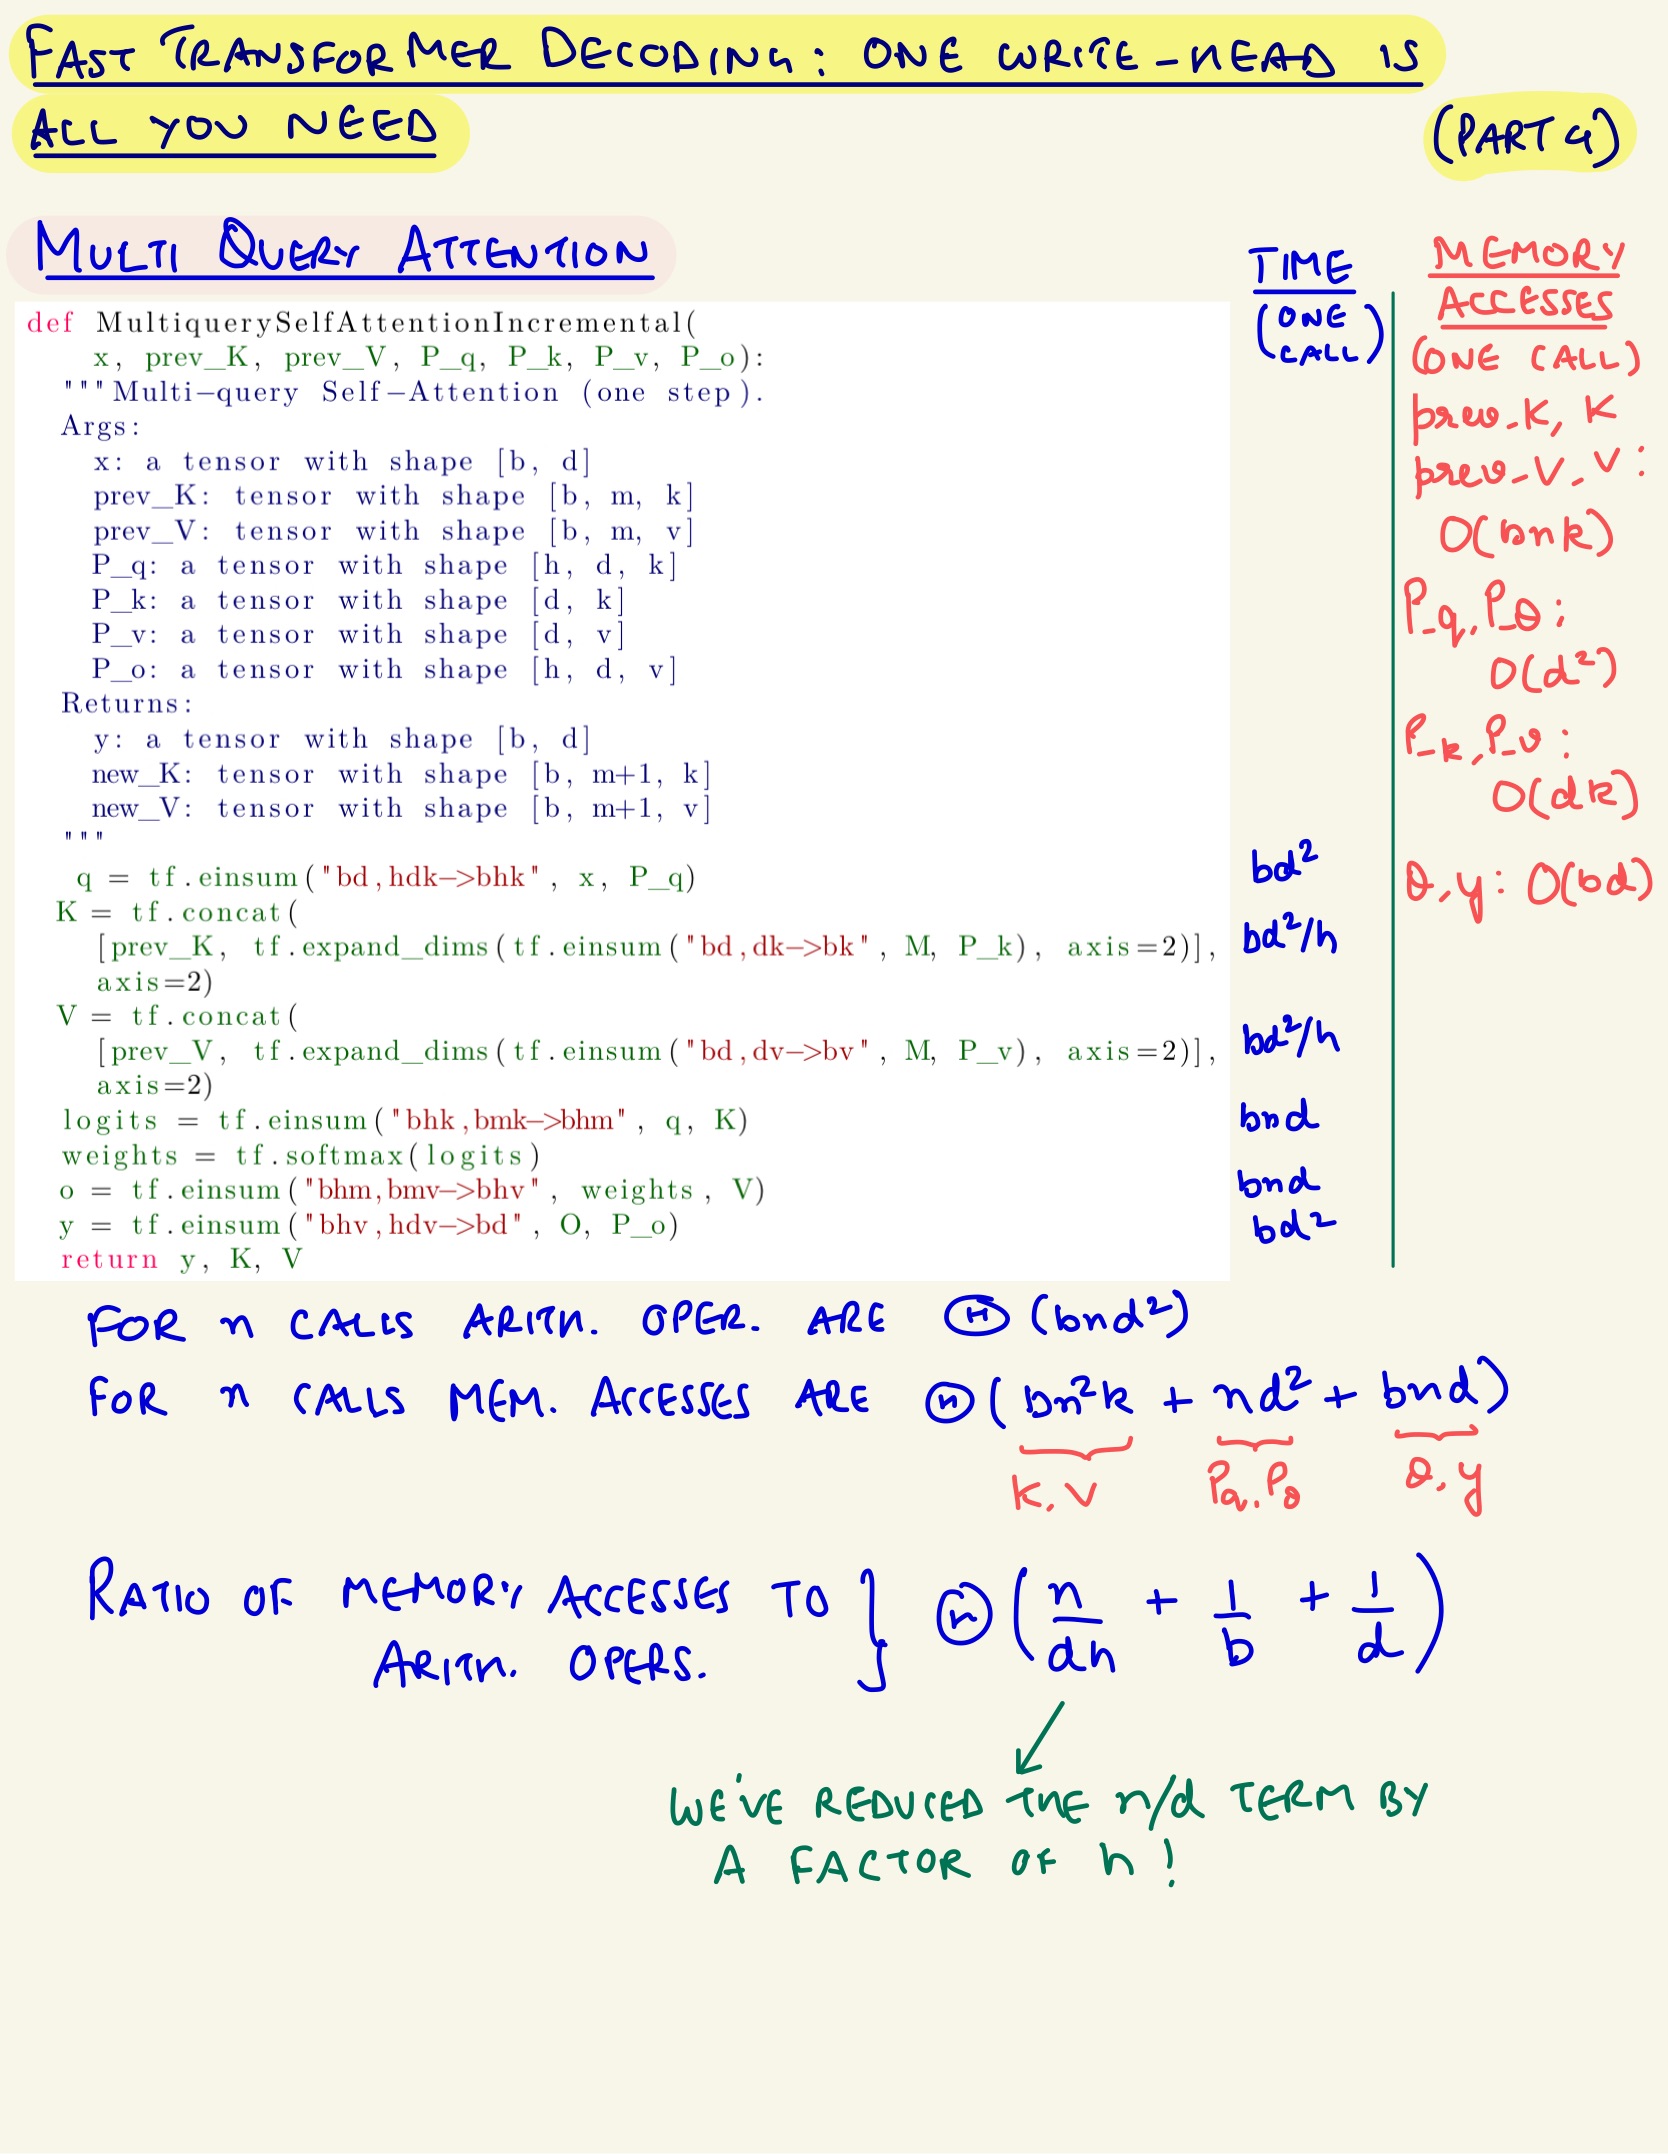 FAST TRANSFORMER DECODING: ONE WRITE-HEAD IS
ALL YOU NEED
(PART 4)
MULTI QUERY ATTENTION
TIME
(ONE
CALL)
MEMORY
ACCESSES
(ONE CALL)
prev_K, K
prev_V, V:
O(bnk)
P_q, P_o:
O(d²)
P_k, P_v:
O(dk)
o, y: O(bd)
def MultiquerySelfAttentionIncremental(
x, prev_K, prev_V, P_q, P_k, P_v, P_o):
"""Multi-query Self-Attention (one step).
Args:
x: a tensor with shape [b, d]
prev_K: tensor with shape [b, m, k]
prev_V: tensor with shape [b, m, v]
P_q: a tensor with shape [h, d, k]
P_k: a tensor with shape [d, k]
P_v: a tensor with shape [d, v]
P_o: a tensor with shape [h, d, v]
Returns:
y: a tensor with shape [b, d]
new_K: tensor with shape [b, m+1, k]
new_V: tensor with shape [b, m+1, v]
"""
q = tf.einsum("bd,hdk->bhk", x, P_q) bd²
K = tf.concat(
[prev_K, tf.expand_dims(tf.einsum("bd,dk->bk", M, P_k), axis=2)], bd²/h
axis=2)
V = tf.concat(
[prev_V, tf.expand_dims(tf.einsum("bd,dv->bv", M, P_v), axis=2)], bd²/h
axis=2)
logits = tf.einsum("bhk,bmk->bhm", q, K) bnd
weights = tf.softmax(logits)
o = tf.einsum("bhm,bmv->bhv", weights, V) bnd
y = tf.einsum("bhv,hdv->bd", O, P_o) bd²
return y, K, V
FOR n CALLS ARITH. OPER. ARE Θ(bnd²)
FOR n CALLS MEM. ACCESSES ARE Θ(bn²k + nd² + bnd)
K, V P_q, P_o o, y
RATIO OF MEMORY ACCESSES TO } Θ(n/dh + 1/b + 1/d)
ARITH. OPERS.
WE'VE REDUCED THE n/d TERM BY
A FACTOR OF h!